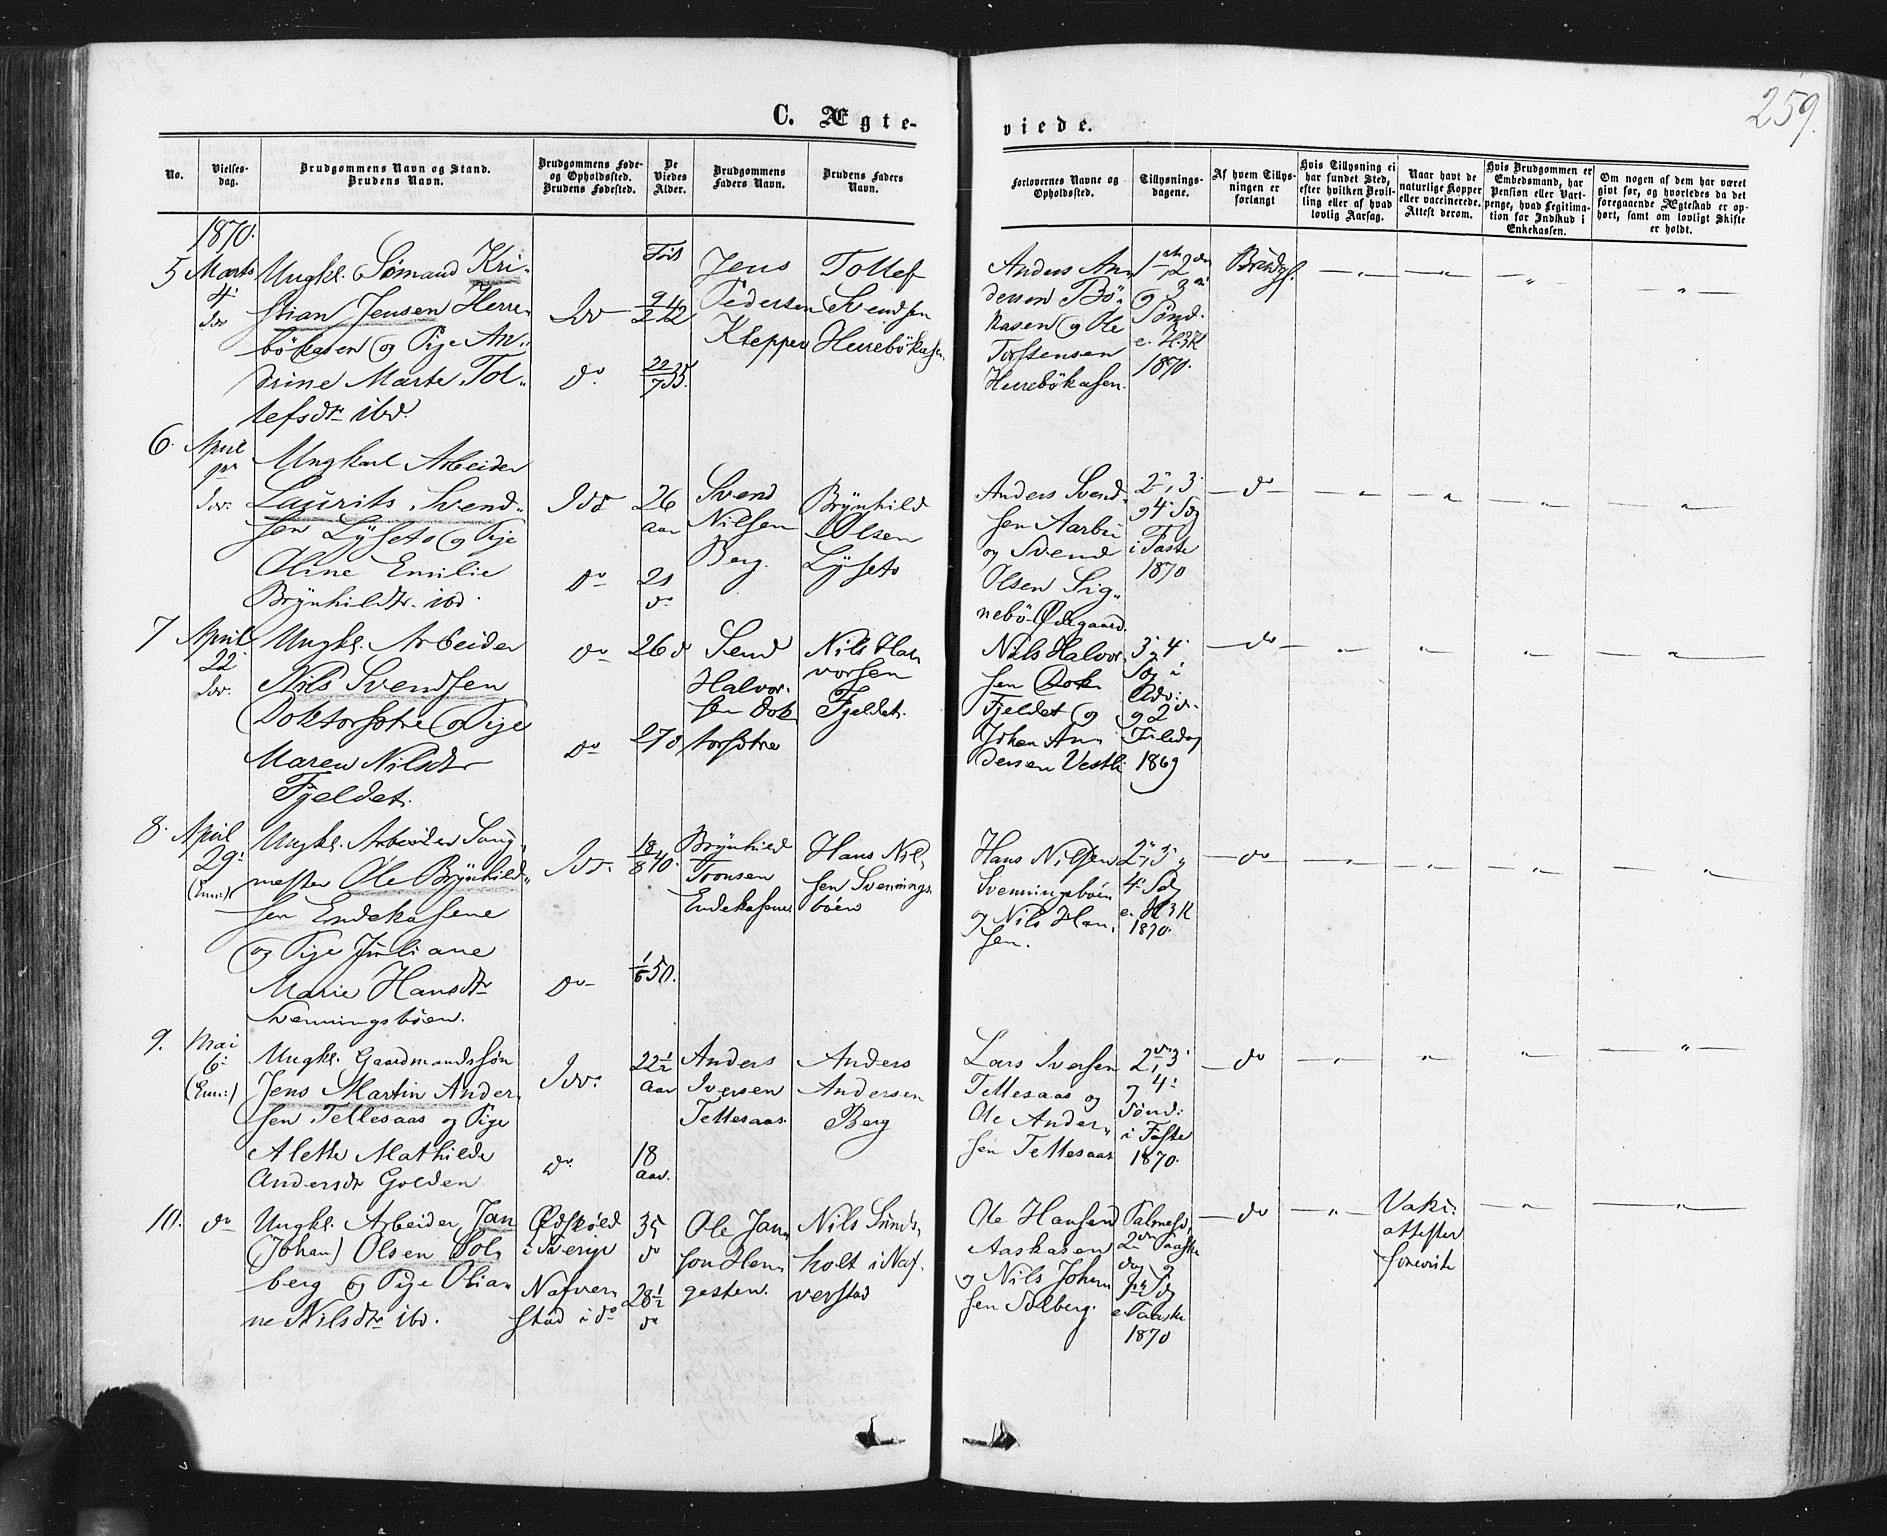 259.
C. Ægte-
viede.
No.
Vielses-
dag.
Brudgommens Navn og Stand.
Brudens Navn.
Brudgommens Føde-
og Opholdssted.
Brudens Fødested.
De
Viedes
Alder.
Brudgommens
Faders Navn.
Brudens Faders
Navn.
Forlovernes Navne og
Opholdssted.
Tillysnings-
dagene.
Af hvem Tillys-
ningen er
forlangt
Hvis Tillysning ei
har fundet Sted,
efter hvilken Bevil-
ling eller af hvad
lovlig Aarsag.
Naar havt de
naturlige Kopper
eller vaccinerede.
Attest derom.
Hvis Brudgommen er
Embedsmand, har
Pension eller Vart-
penge, hvad Legitima-
tion for Indskud i
Enkekassen.
Om nogen af dem har været
givt før, og hvorledes da det
foregaaende Ægteskab er op-
hørt, samt om lovligt Skifte
er holdt.
1870.
5
Marts
4
Idd
Ungkl. Sømand Kri-
stian Jensen Herre-
bökasen og Pige An-
drine Marte Tol-
lefsdtr ibd.
Idd
do
Född
9/2 42
20/7 35
Jens
Pedersen
Klepper
Tollef
Svendsen
Herrebökasen
Anders An-
dersen Bö-
kasen og Ole
Torstensen
Herrebökasen.
1ste 2den
og 3die
Sønd.
e. H3K
1870.
Brudg.
— „ —
— „ —
„
— „ —
6.
April
1ste
Idd.
Ungkarl Arbeider
Laurits Svend-
sen Lyseto og Pige
Oline Emilie
Brynhildtr. ibd.
Idd
do
26
Aar
21
do
Svend
Nilsen
Berg.
Brynhild
Olsen
Lyseto
Anders Svend-
sen Aarbu
og Svend
Olsen Sig-
nebö Ødegaard.
2, 3
og 4 Sdg
i Faste
1870
— do —
— „ —
— „ —
— „ —
— „ —
7
April
22
Idd.
Ungkl. Arbeider
Nils Svendsen
Doktorsotre og Pige
Maren Nilsdtr
Fjeldet.
do
do
26 d
27 d
Send
Halvor-
sen Dok-
torsotre
Nils Hal-
vorsen
Fjeldet.
Nils Halvor-
sen
Fjeldet og
Johan An-
dersen Vestli
3, 4
Sdg i
Adv:
og 2d.
Juledag
1869
— do —
— „ —
— „ —
— „ —
— „ —
8.
April
29.
(Enn:)
Ungkl. Arbeider Sang-
mester Ole Brynhild-
sen Endekasene
og Pige Juliane
Marie Hansdtr
Svenningsböen.
Idd.
do
18/8 40.
1/6 50.
Brynhild
Tronsen
Endekasene
Hans Nil-
sen Svennings-
böen
Hans Nilsen
Svenningsböen
og Nils Han-
sen.
2, 3,
4 Sdg
e. H3K
1870.
— do —
— „ —
— „ —
— „ —
— „ —
9.
Mai
6
(Enn:)
Ungkl. Gaardmandssøn
Jens Martin Ander-
sen Tellesaas og Pige
Alette Mathilde
Andersdtr Golden
Idd.
do
22½
Aar
18
Aar.
Anders
Iversen
Tellesaas.
Anders
Andersen
Berg
Lars Iversen
Tellesaas og
Ole Ander-
sen Tellesaas
2, 3
og 4
Sønd:
i Faste
1870.
— do
— „ —
— „ —
— „ —
— „ —
10.
do
Ungkl. Arbeider Jan
(Johan) Olsen Sol-
berg og Pige Olia-
ne Nilsdtr ibd.
Ødskøld
i Sverige
Nafver-
stad i do
35
do
28½
do
Ole Jan-
son Hen-
gesten.
Nils Sunds-
holt i Naf-
verstad
Ole Hansen
Aaskasen
og Nils Johan-
sen Solberg.
Palmesd,
2den Paaske-
dag og
1ste Sdg
e. Paaske
1870
— do —
— „ —
Vakc.
attester
forevist
— „ —
— „ —